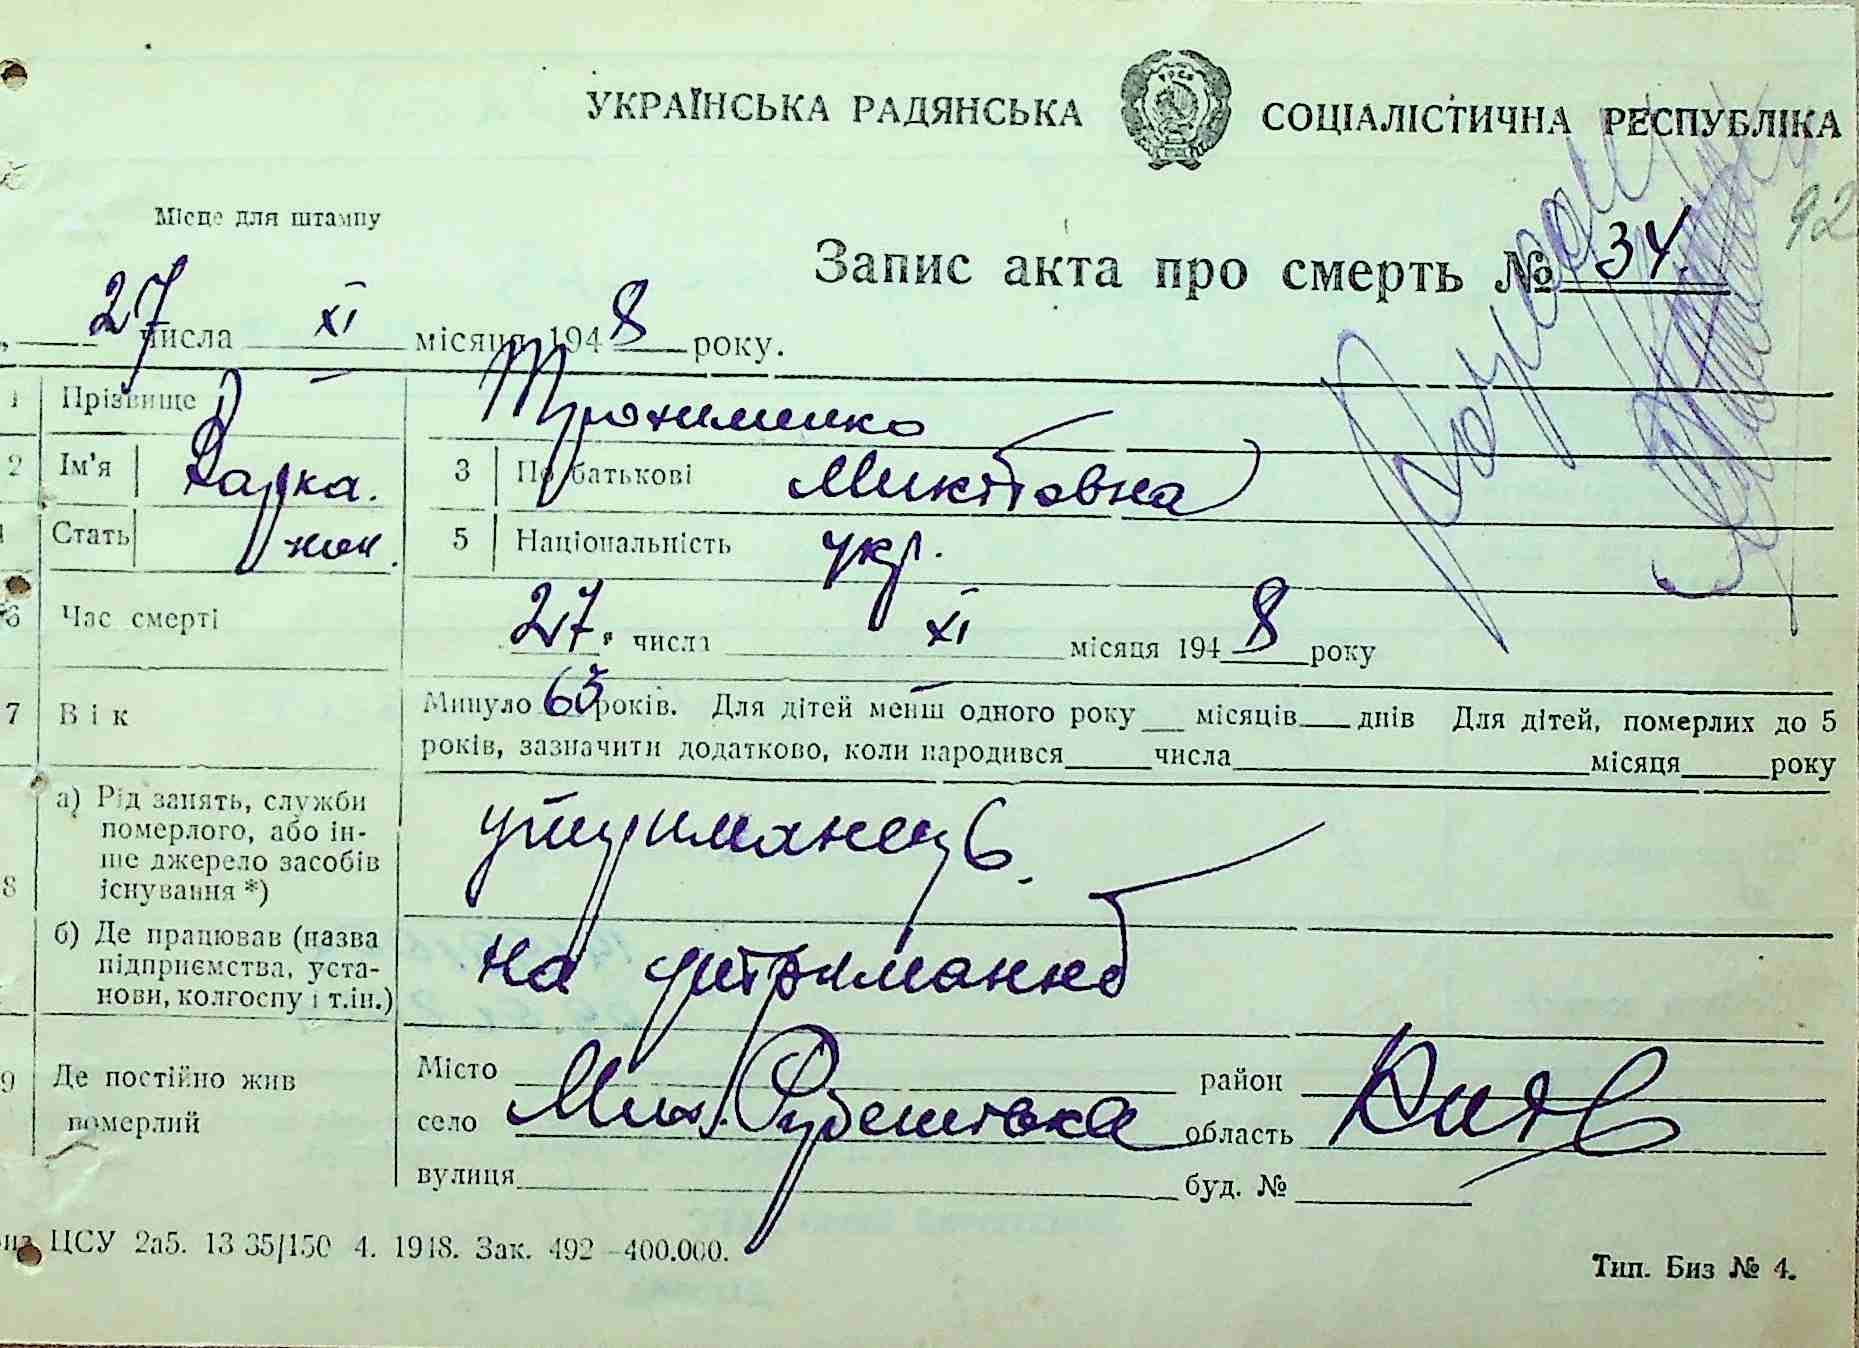 УКРАЇНСЬКА РАДЯНСЬКА СОЦІАЛІСТИЧНА РЕСПУБЛІКА
92
Місце для штампу
Запис акта про смерть № 34.
27 числа XI місяця 1948 року.
1 Прізвище Трохименко
2 Ім'я Варка. 3 По батькові Микитовна
Стать жін. 5 Національність укр.
6 Час смерті 27. числа XI місяця 1948 року
7 Вік Минуло 63 років. Для дітей менш одного року місяців днів Для дітей, померлих до 5
років, зазначити додатково, коли народився числа місяця року
8 а) Рід занять, служби
померлого, або ін-
ше джерело засобів
існування *)
утриманець.
б) Де працював (назва
підприємства, уста-
нови, колгоспу і т.ін.)
на утриманні
9 Де постійно жив
померлий
Місто район
село Мих. Рубежівка область Київ
вулиця буд. №
ЦСУ 2а5. 13 35/150 4. 1948. Зак. 492—400.000.
Тип. Биз № 4.